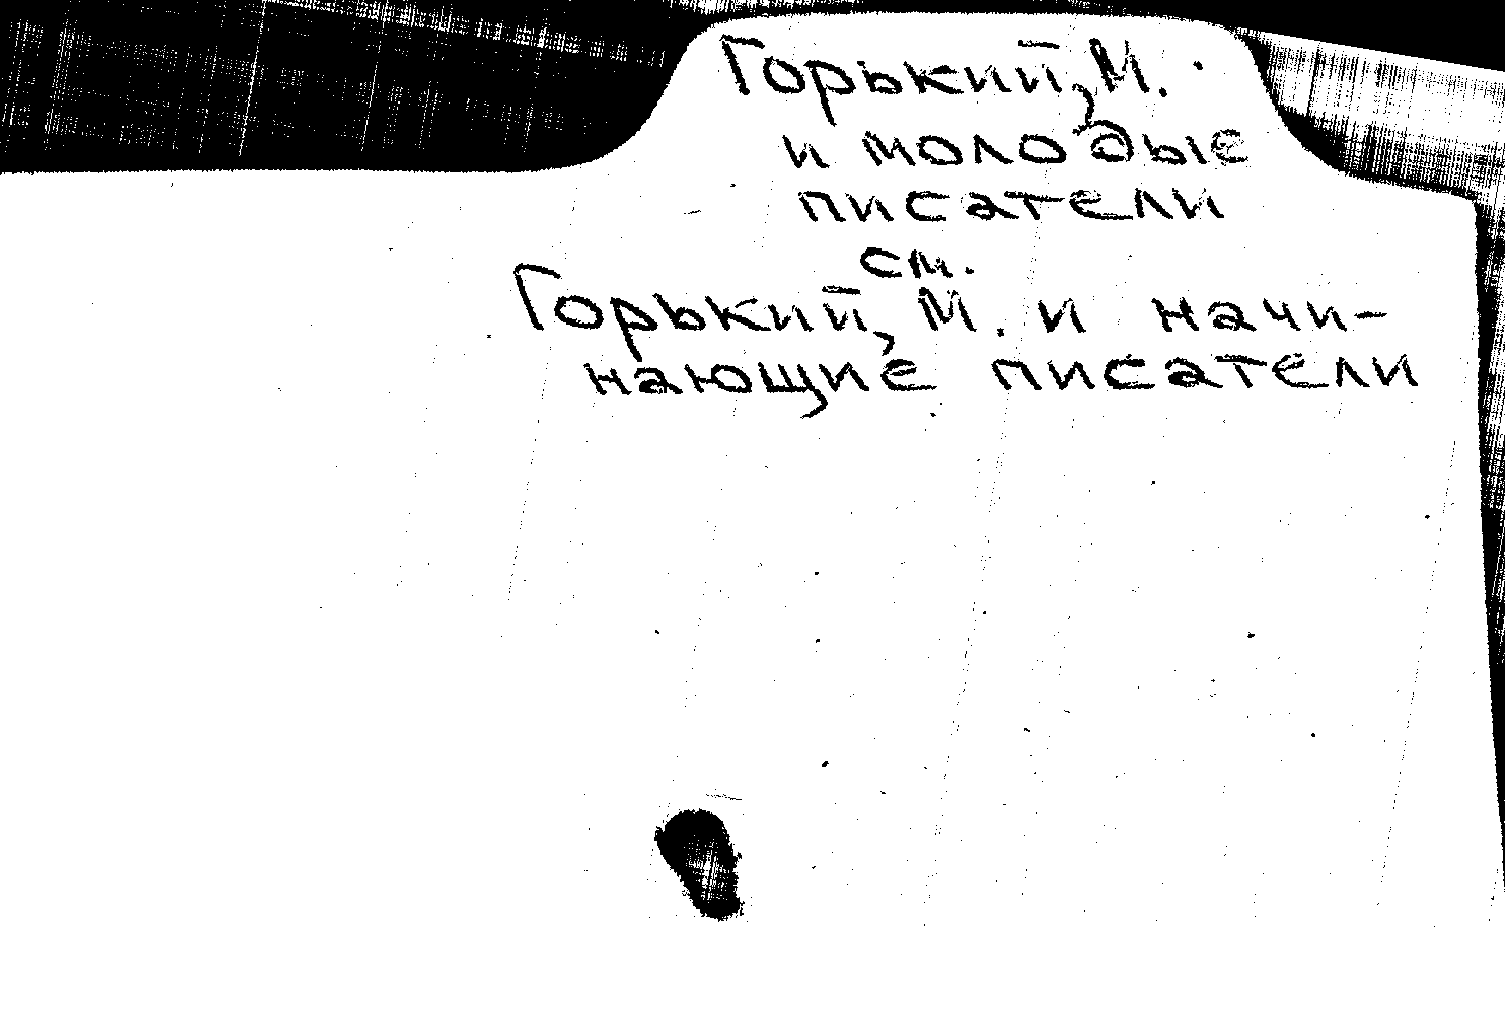 Горький, М.
и молодые
писатели
см.
Горький, М. и начи-
нающие писатели